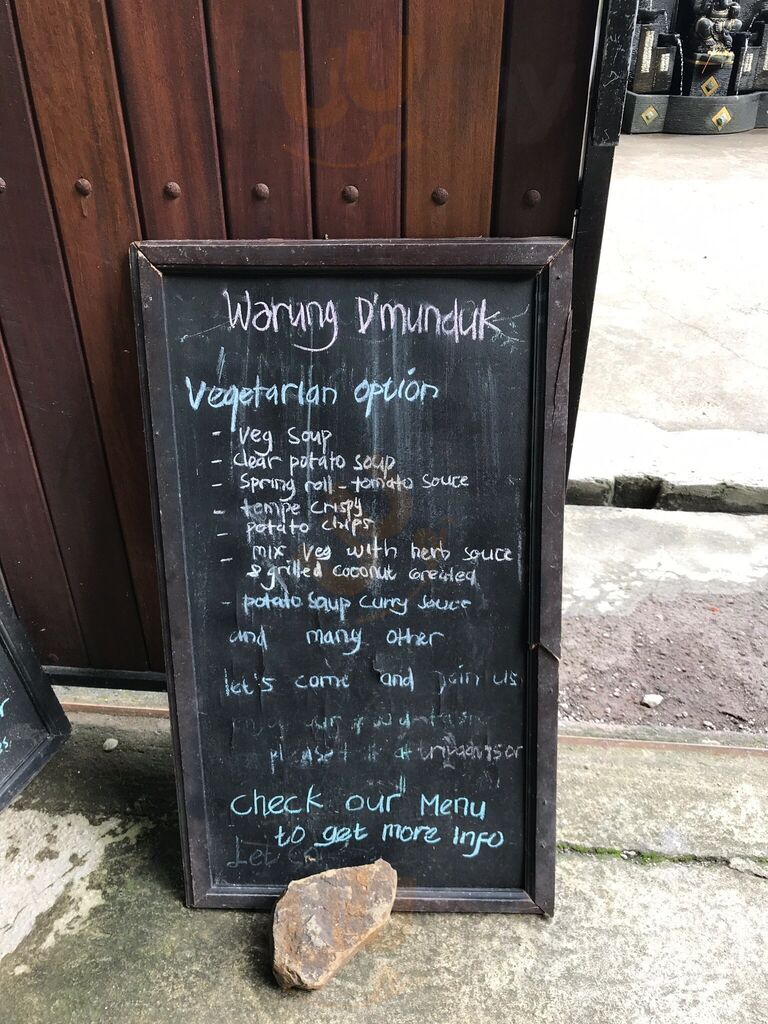 Warung D'munduk
Vegetarian option
- veg soup
- clear potato soup
- spring roll - tomato souce
- tempe crispy
- potato chips
- mix veg with herb souce
& grilled coconut
- potato soup curry souce
and many other
let's come and join us
at tripadvisor
check our Menu
to get more info
Let